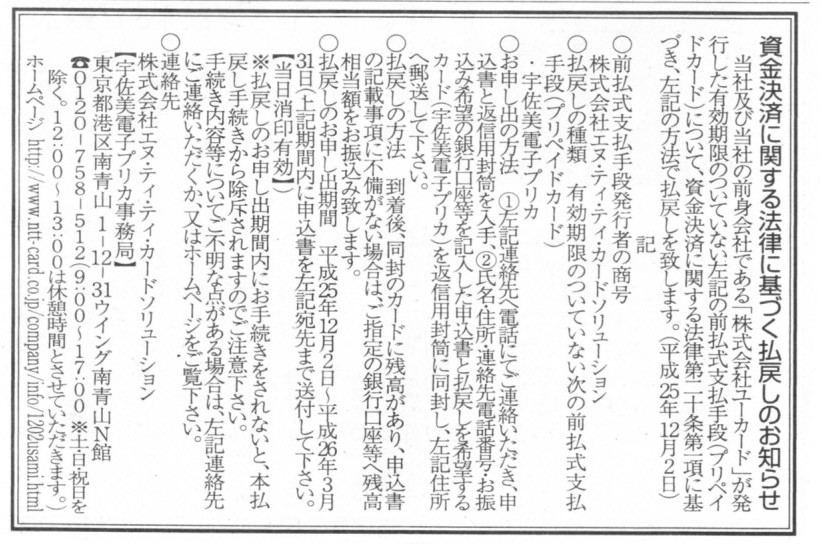 資金決済に関する法律に基づく払戻しのお知らせ
当社及び当社の前身会社である「株式会社ユーカード」が発
行した有効期限のついていない左記の前払式支払手段(プリペイ
ドカード)について、資金決済に関する法律第二十条第一項に基
づき、左記の方法で払戻しを致します。(平成25年12月2日)
記
○前払式支払手段発行者の商号
株式会社エヌ・ティ・ティ・カードソリューション
○払戻しの種類 有効期限のついていない次の前払式支払
手段(プリペイドカード)
・宇佐美電子プリカ
○お申し出の方法 ①左記連絡先へ電話にてご連絡いただき、申
込書と返信用封筒を入手、②氏名・住所・連絡先電話番号・お振
込み希望の銀行口座等を記入した申込書と払戻しを希望する
カード(宇佐美電子プリカ)を返信用封筒に同封し、左記住所
へ郵送して下さい。
○払戻しの方法 到着後、同封のカードに残高があり、申込書
の記載事項に不備がない場合は、ご指定の銀行口座等へ残高
相当額をお振込み致します。
○払戻しのお申し出期間 平成25年12月2日〜平成26年3月
31日(上記期間内に申込書を左記宛先まで送付して下さい。
【当日消印有効】)
※払戻しのお申し出期間内にお手続きをされないと、本払
戻し手続きから除斥されますのでご注意下さい。
手続き内容等についてご不明な点がある場合は、左記連絡先
にご連絡いただくか、又はホームページをご覧下さい。
○連絡先
株式会社エヌ・ティ・ティ・カードソリューション
【宇佐美電子プリカ事務局】
東京都港区南青山 1-12-31ウイング南青山N館
☎0120-758-512(9:00〜17:00 ※土・日・祝日を
除く。12:00〜13:00は休憩時間とさせていただきます。)
ホームページ http://www.ntt-card.co.jp/company/info/1202usami.html